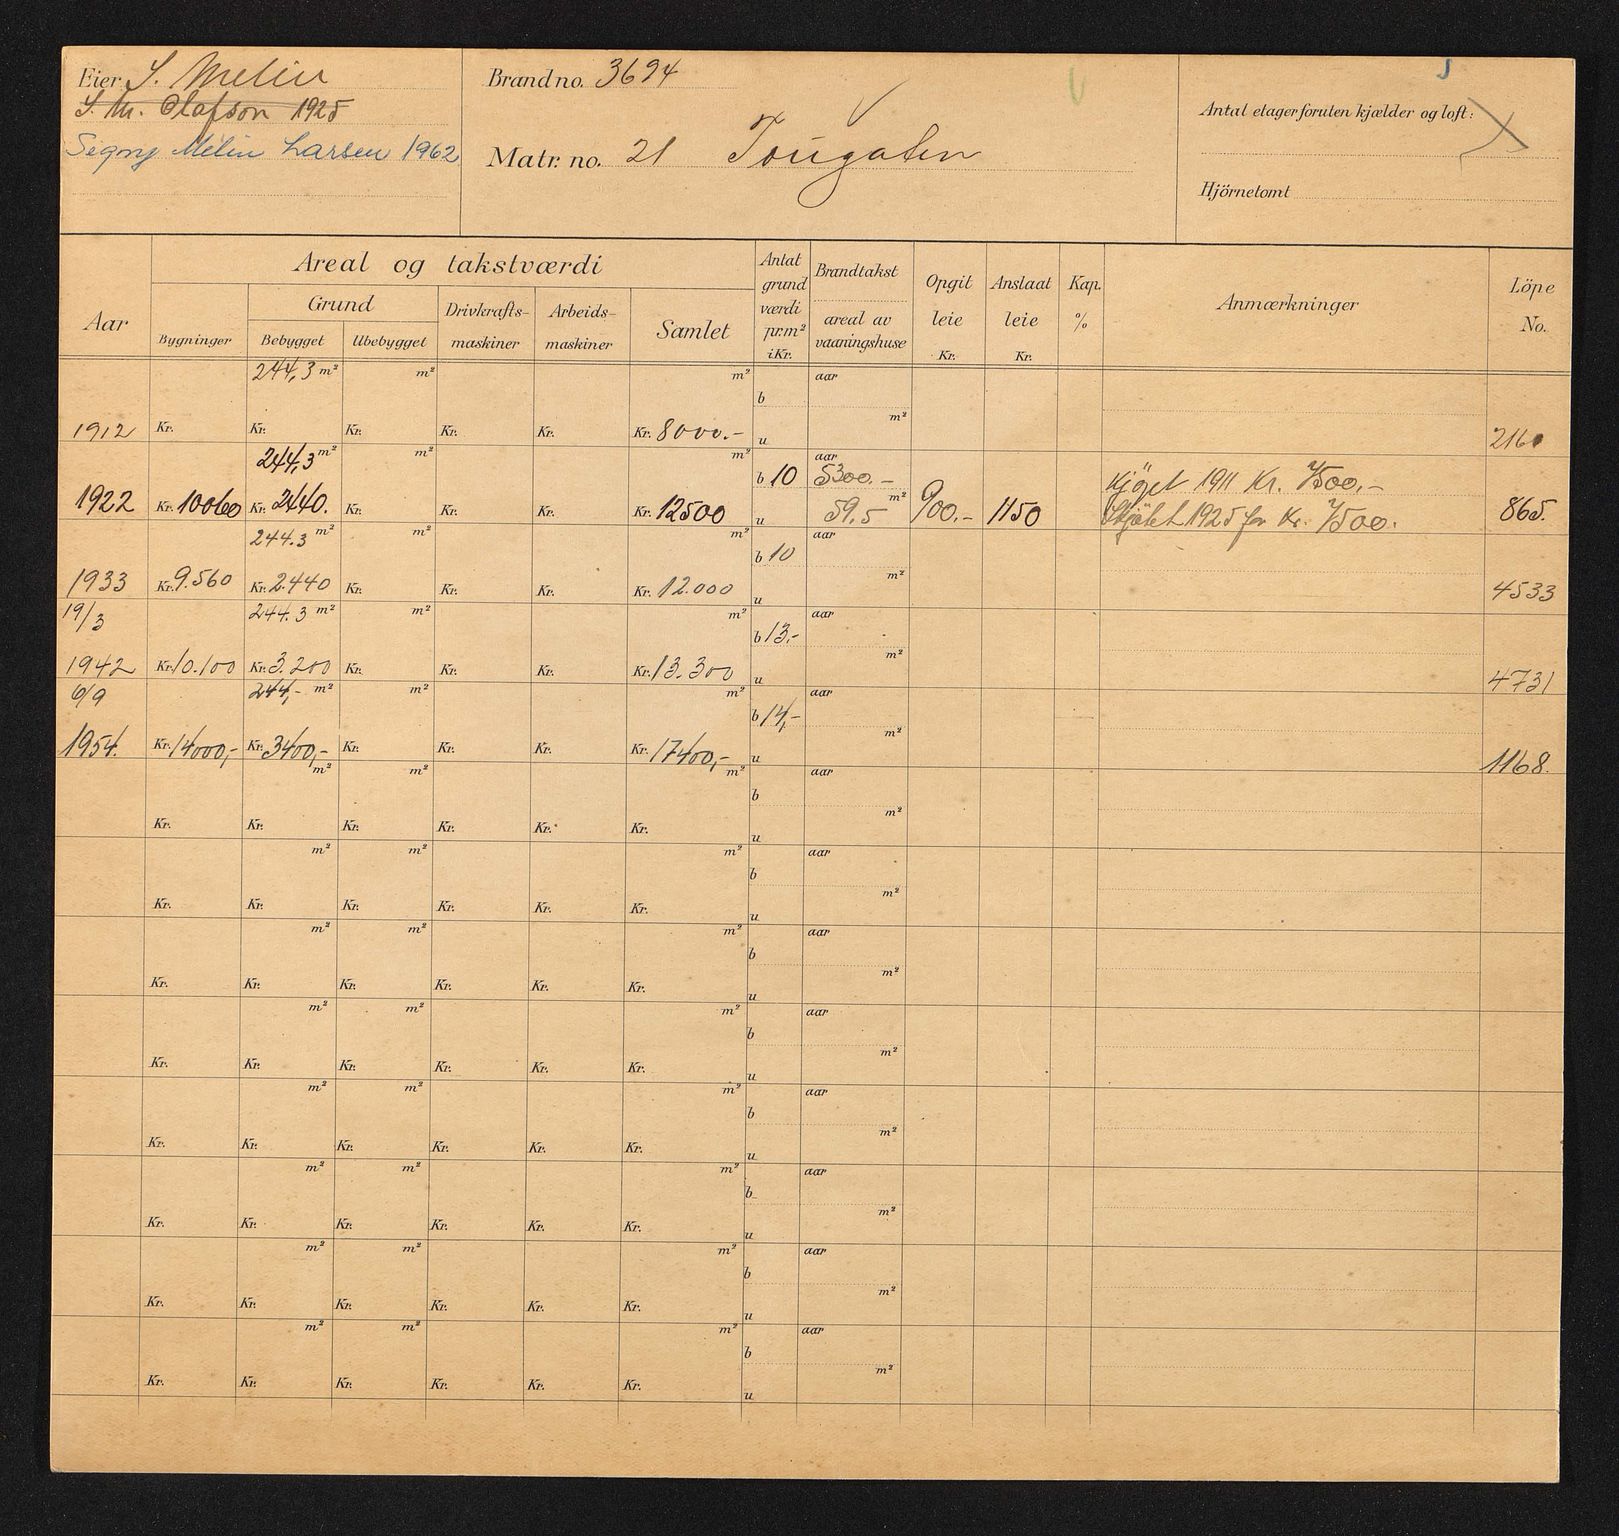 Eier S. Melin
S. M. Olafson 1925
Signy Melin Larsen 1962
Brand no. 3694
Matr. no. 21 Tougaten
Antal etager foruten kjælder og loft:
Hjörnetomt
Aar
Areal og takstværdi
Grund
Bygninger Bebygget Ubebygget
Drivkrafts-maskiner
Arbeids-maskiner
Samlet
Antat grund værdi pr. m² i Kr.
Brandtakst
areal av vaaningshuse
Opgit leie Kr.
Anslaat leie Kr.
Kap. %
Anmærkninger
Löpe No.
244,3 m² m² m² aar
b m²
1912 Kr. Kr. Kr. Kr. Kr. Kr. 8000.- u 2160
244,3 m² m² m² aar
b 10 5300.- m² Kjöpt 1911 Kr. 7500.-
1922 Kr. 10060 Kr. 2440. Kr. Kr. Kr. Kr. 12500 u 59.5 900.- 1150 Skjötet 1925 for Kr. 7500. 865.
244.3 m² m² m² aar
b 10 m²
1933 Kr. 9.560 Kr. 2.440 Kr. Kr. Kr. Kr. 12.000 u 4533
19/3 244.3 m² m² m² aar
b 13.- m²
1942 Kr. 10.100 Kr. 3.200 Kr. Kr. Kr. Kr. 13.300 u 4731
6/9 244,- m² m² m² aar
b 14,- m²
1954. Kr. 14000,- Kr. 3400,- Kr. Kr. Kr. Kr. 17400,- u 1168.
m² m² m² aar
b m²
Kr. Kr. Kr. Kr. Kr. Kr. u
m² m² m² aar
b m²
Kr. Kr. Kr. Kr. Kr. Kr. u
m² m² m² aar
b m²
Kr. Kr. Kr. Kr. Kr. Kr. u
m² m² m² aar
b m²
Kr. Kr. Kr. Kr. Kr. Kr. u
m² m² m² aar
b m²
Kr. Kr. Kr. Kr. Kr. Kr. u
m² m² m² aar
b m²
Kr. Kr. Kr. Kr. Kr. Kr. u
m² m² m² aar
b m²
Kr. Kr. Kr. Kr. Kr. Kr. u
m² m² m² aar
b m²
Kr. Kr. Kr. Kr. Kr. Kr. u